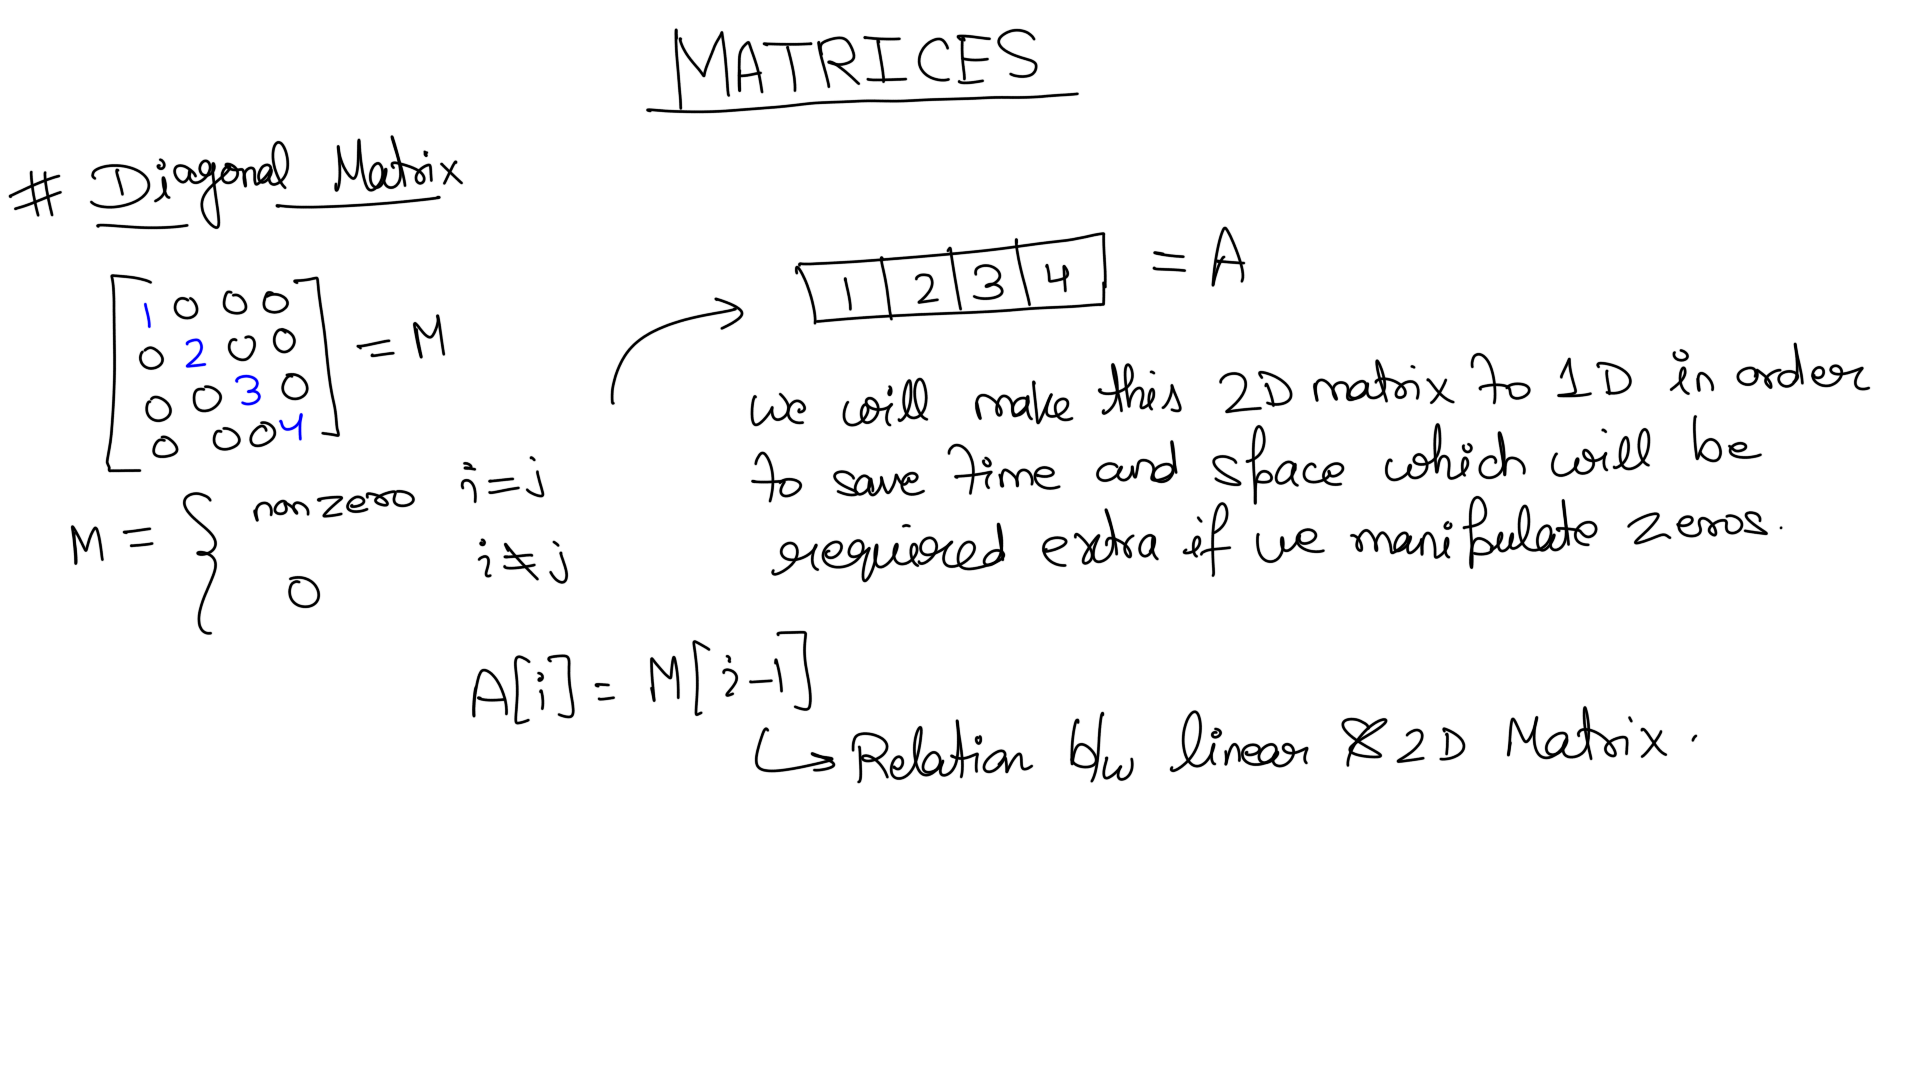 MATRICES
# Diagonal Matrix
1 0 0 0
0 2 0 0 = M
0 0 3 0
0 0 0 4
M = { non zero i=j
0 i≠j
1 2 3 4 = A
we will make this 2D matrix to 1D in order
to save time and space which will be
required extra if we manipulate zeros.
A[i] = M[i-1]
↳ Relation b/w linear & 2D Matrix.